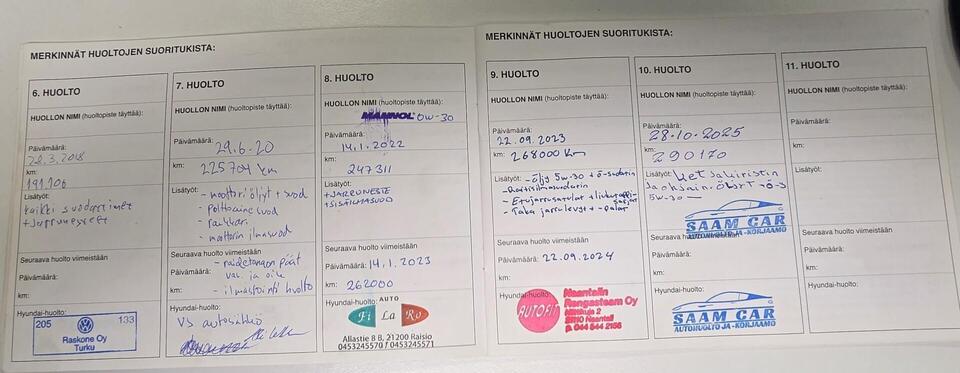 MERKINNÄT HUOLTOJEN SUORITUKISTA:
6. HUOLTO
HUOLLON NIMI (huoltopiste täyttää):
Päivämäärä:
28.3.2018
km:
191.106
Lisätyöt:
kaikki suodattimet
+Jarruneste
Seuraava huolto viimeistään
Päivämäärä:
km:
Hyundai-huolto:
205 133
Raskone Oy
Turku
7. HUOLTO
HUOLLON NIMI (huoltopiste täyttää):
Päivämäärä:
29.6-20
km:
225704 km
Lisätyöt:
- moottoriöljyt + suod
- polttoaine suod
- raikkari
- moottorin ilmasuod
Seuraava huolto viimeistään
- raidetangon päät
Päivämäärä: vas. ja oik
km:
- ilmastointi huolto
Hyundai-huolto:
VS autosähkö
8. HUOLTO
HUOLLON NIMI (huoltopiste täyttää):
MANNOL 0W-30
Päivämäärä:
14.1.2022
km:
247311
Lisätyöt:
+JARRUNESTE
+SISÄILMASUOD
Seuraava huolto viimeistään
Päivämäärä: 14.1.2023
km: 262000
Hyundai-huolto:
AUTO
Fi La Ro
Allastie 8 B, 21200 Raisio
0453245570 / 0453245571
MERKINNÄT HUOLTOJEN SUORITUKISTA:
9. HUOLTO
HUOLLON NIMI (huoltopiste täyttää):
Päivämäärä:
22.09.2023
km:
268000 Km
Lisätyöt: - öljy 5w-30 + ö-suodatin
- Raitisilmasuodatin
- Etujarrusatulat + liukutappi
- Taka jarrulevyt + -palat
Seuraava huolto viimeistään
Päivämäärä: 22.09.2024
km:
Hyundai-huolto:
AUTOFIT
Naantalin
Rengasteam Oy
21110 Naantali
p. 044 544 2156
10. HUOLTO
HUOLLON NIMI (huoltopiste täyttää):
Päivämäärä:
28-10-2025
km:
290170
Lisätyöt:
5w-30
SAAM CAR
AUTOHUOLTO JA -KORJAAMO
Seuraava huolto viimeistään
Päivämäärä:
km:
Hyundai-huolto:
SAAM CAR
AUTOHUOLTO JA -KORJAAMO
11. HUOLTO
HUOLLON NIMI (huoltopiste täyttää):
Päivämäärä:
km:
Lisätyöt:
Seuraava huolto viimeistään
Päivämäärä:
km:
Hyundai-huolto: